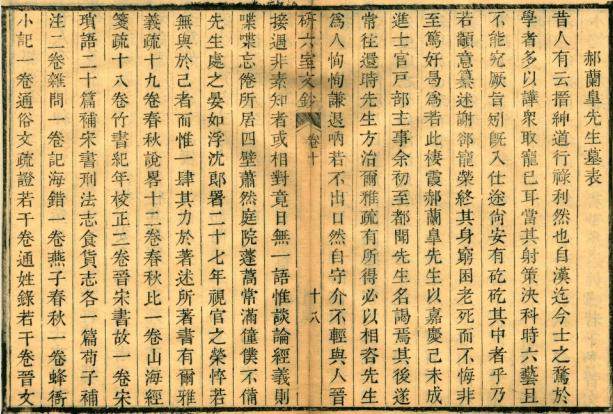 郝蘭皐先生墓表
昔人有云搢紳道行祿利然也自漢迄今士之騖於
學者多以譁衆取寵已耳當其射策決科時六藝且
不能究厥言矧旣入仕途尙安有矻矻其中者乎乃
若顓意纂述謝郤寵榮終其身窮困老死而不悔非
至篤好曷爲若此棲霞郝蘭皐先生以嘉慶己未成
進士官戸部主事余初至都聞先生名謁焉其後遂
常往還時先生方治爾雅疏有所得必以相咨先生
爲人恂恂謙退吶若不出口然自守介不輕與人晉
研六室文鈔
卷十
十八
接遇非素知者或相對竟日無一語惟談論經義則
喋喋忘倦所居四壁蕭然庭院蓬蒿常滿僮僕不備
先生處之晏如浮沈郎署二十七年視官之榮悴若
無與於己者而惟一肆其力於著述所著書有爾雅
義疏十九卷春秋說畧十二卷春秋比一卷山海經
箋疏十八卷竹書紀年校正三卷晉宋書故一卷宋
瑣語二十篇補宋書刑法志食貨志各一篇荀子補
注二卷雜問一卷記海錯一卷燕子春秋一卷蜂衙
小記一卷通俗文疏證若干卷通姓錄若干卷晉文